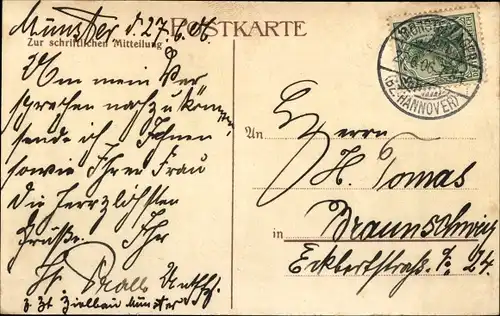 Munster d. 27.6.06
POSTKARTE
Zur schriftlichen Mitteilung
Um mein Ver
sprechen nachzukommen,
sende ich Ihnen
sowie Ihrer Frau
die herzlichsten
Grüsse. Ihr
H.
z. Zt. Munster
MUNSTER
(BZ. HANNOVER)
An Herrn
H. Tomas
in Braunschweig
Eckbertstraße 24.